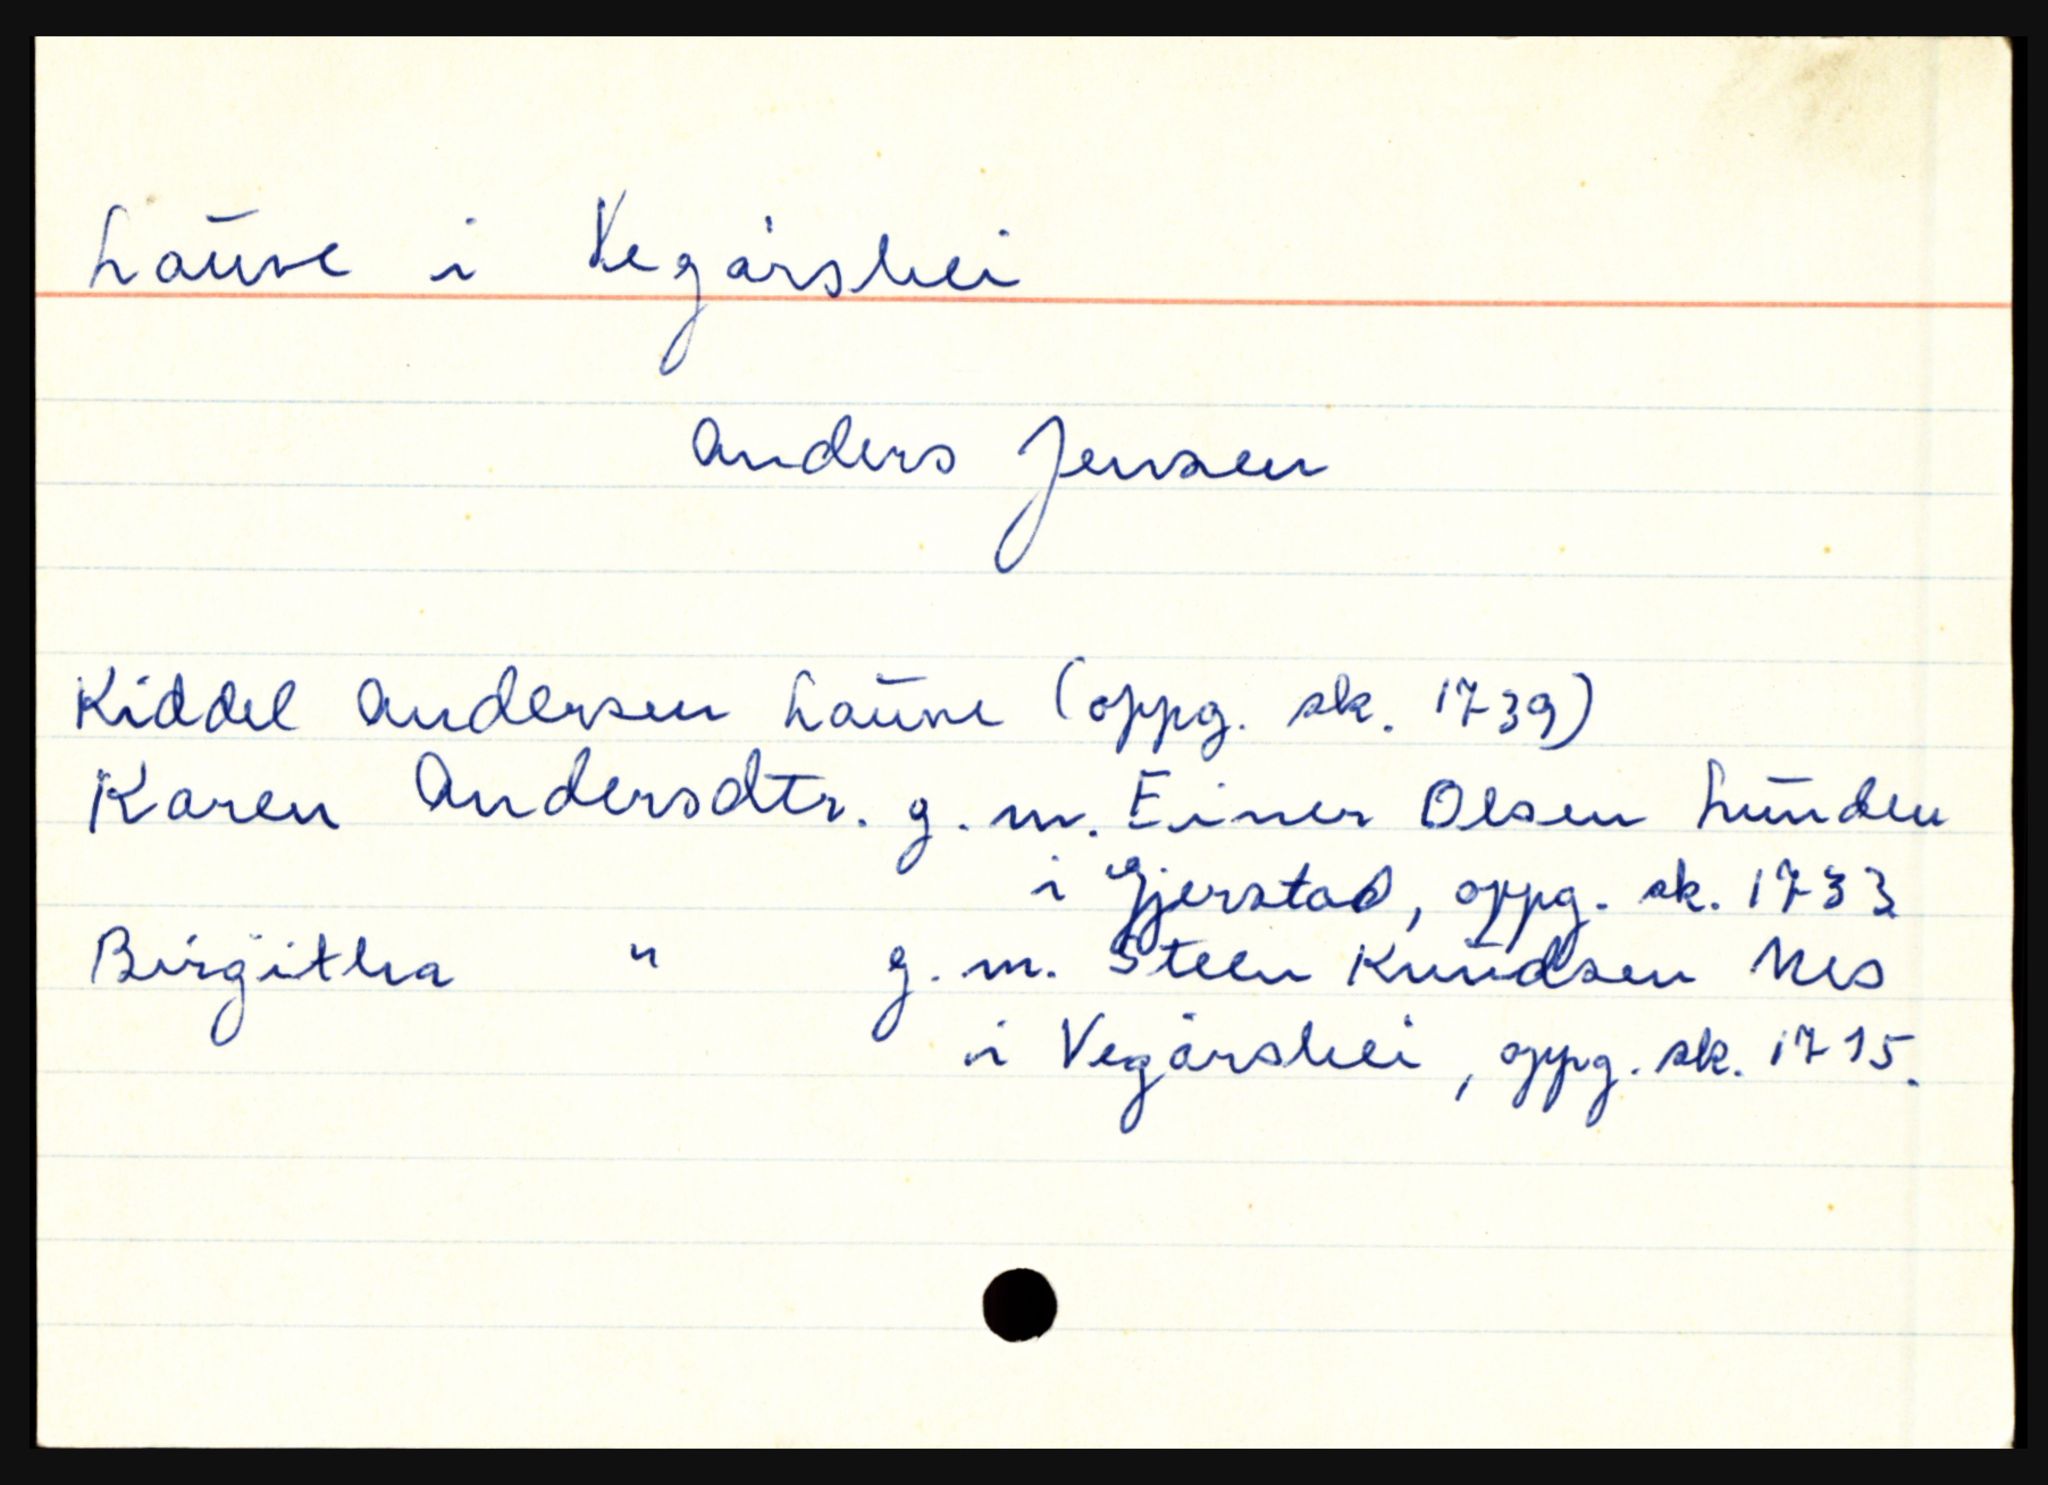 Lauve i Vegårshei
Anders Jensen
Kiddel Andersen Lauve (oppg. sk. 1739)
Karen Andersdtr. g. m. Einer Olsen Lunden
i Gjerstad, oppg. sk. 1733
Birgitha " g. m. Steen Knudsen Nes
i Vegårshei, oppg. sk. 1715.